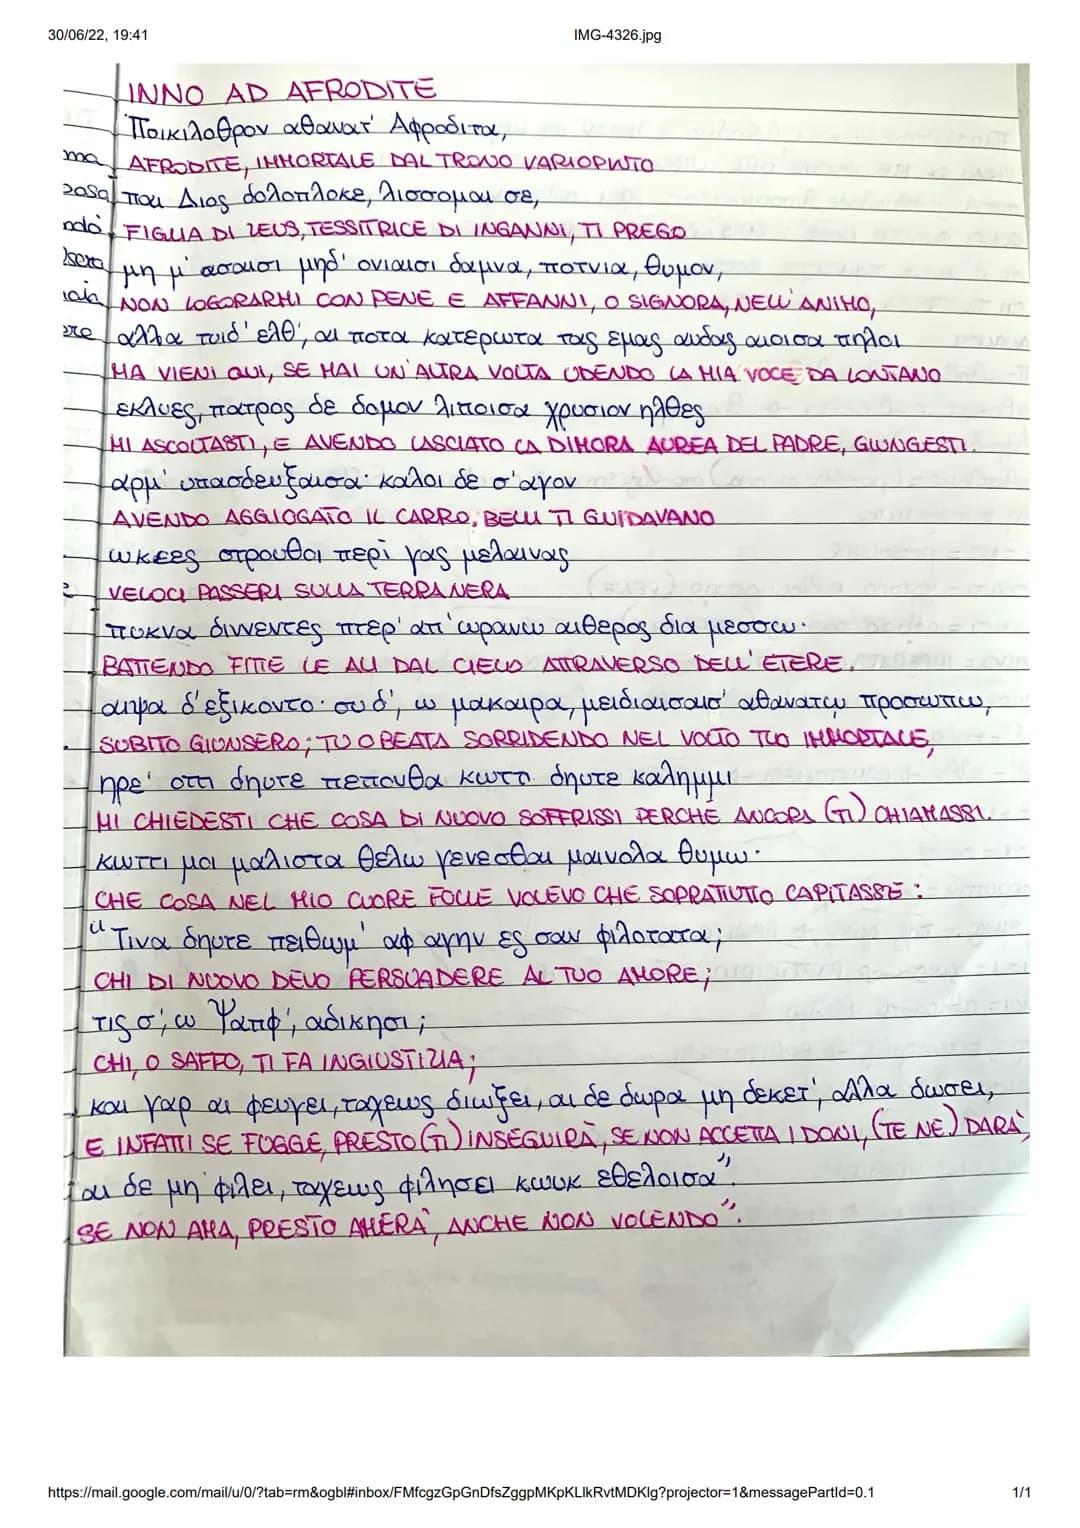 30/06/22, 19:41
IMG-4326.jpg
INNO AD AFRODITE
Ποικιλοθρον αθανατ' Αφροδιτα,
AFRODITE, IMMORTALE DAL TRONO VARIOPINTO
παι Διος δολοπλοκε, λισσομαι σε,
FIGLIA DI ZEUS, TESSITRICE DI INGANNI, TI PREGO
μη μ' ασαισι μηδ' ονιαισι δαμνα, ποτνια, θυμον,
NON LOGORARMI CON PENE E AFFANNI, O SIGNORA, NELL'ANIMO,
αλλα τυιδ' ελθ', αι ποτα κατερωτα τας εμας αυδας αιοισα πηλοι
MA VIENI QUI, SE MAI UN'ALTRA VOLTA UDENDO LA MIA VOCE DA LONTANO
εκλυες, πατρος δε δομον λιποισα χρυσιον ηλθες
MI ASCOLTASTI, E AVENDO LASCIATO LA DIMORA AUREA DEL PADRE, GIUNGESTI.
αρμ' υπασδευξαισα· καλοι δε σ'αγον
AVENDO AGGIOGATO IL CARRO; BELLI TI GUIDAVANO
ωκεες στρουθοι περι γας μελαινας
VELOCI PASSERI SULLA TERRA NERA
πυκνα διννεντες πτερ' απ'ωρανω αιθερος δια μεσσω·
BATTENDO FITTE LE ALI DAL CIELO ATTRAVERSO DELL'ETERE.
αιψα δ'εξικοντο· συ δ', ω μακαιρα, μειδιαισαισ' αθανατῳ προσωπῳ,
SUBITO GIUNSERO; TU O BEATA SORRIDENDO NEL VOLTO TUO IMMORTALE,
ηρε' οττι δηυτε πεπονθα κωττι δηυτε καλημμι
MI CHIEDESTI CHE COSA DI NUOVO SOFFRISSI PERCHÉ ANCORA (TI) CHIAMASSI.
κωττι μοι μαλιστα θελω γενεσθαι μαινολα θυμω·
CHE COSA NEL MIO CUORE FOLLE VOLEVO CHE SOPRATTUTTO CAPITASSE:
"Τινα δηυτε πειθωμ' αφ αγην ες σαν φιλοτατα;
CHI DI NUOVO DEVO PERSUADERE AL TUO AMORE;
τις σ', ω Ψαπφ', αδικησι;
CHI, O SAFFO, TI FA INGIUSTIZIA;
και γαρ αι φευγει, ταχεως διωξει, αι δε δωρα μη δεκετ', αλλα δωσει,
E INFATTI SE FUGGE, PRESTO (TI) INSEGUIRÀ, SE NON ACCETTA I DONI, (TE NE) DARÀ,
αι δε μη φιλει, ταχεως φιλησει κωυκ εθελοισα".
SE NON AMA, PRESTO AMERÀ, ANCHE NON VOLENDO".
https://mail.google.com/mail/u/0/?tab=rm&ogbl#inbox/FMfcgzGpGnDfsZggpMKpKLlkRvtMDKlg?projector=1&messagePartId=0.1
1/1